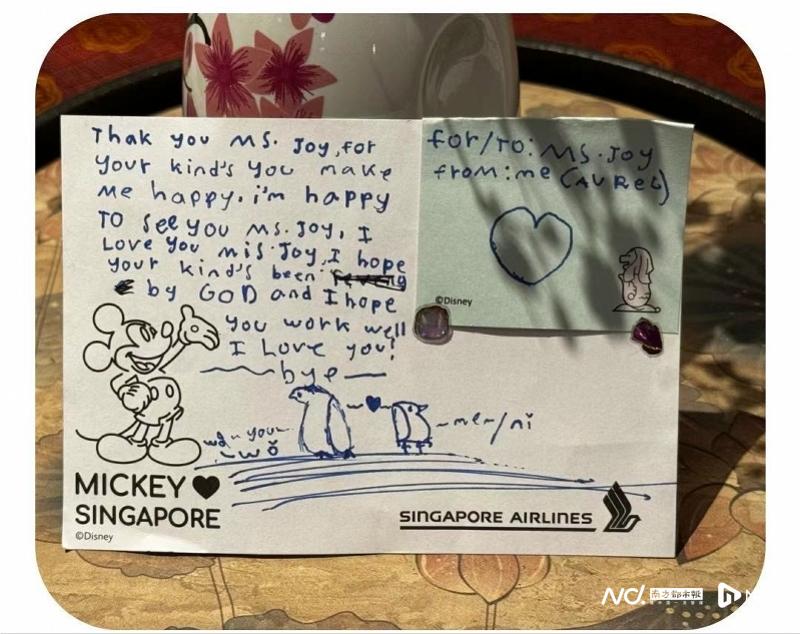 Thak you Ms. Joy, for
your kind's you make
me happy. i'm happy
TO see you Ms. Joy, I
Love you mis Joy, I hope
your kind's been
by GOD and I hope
you work well
I Love you!
bye
for/To: Ms. Joy
from: me (AUREL)
©Disney
you
wǒ
me/nǐ
MICKEY
SINGAPORE
©Disney
SINGAPORE AIRLINES
南方都市报